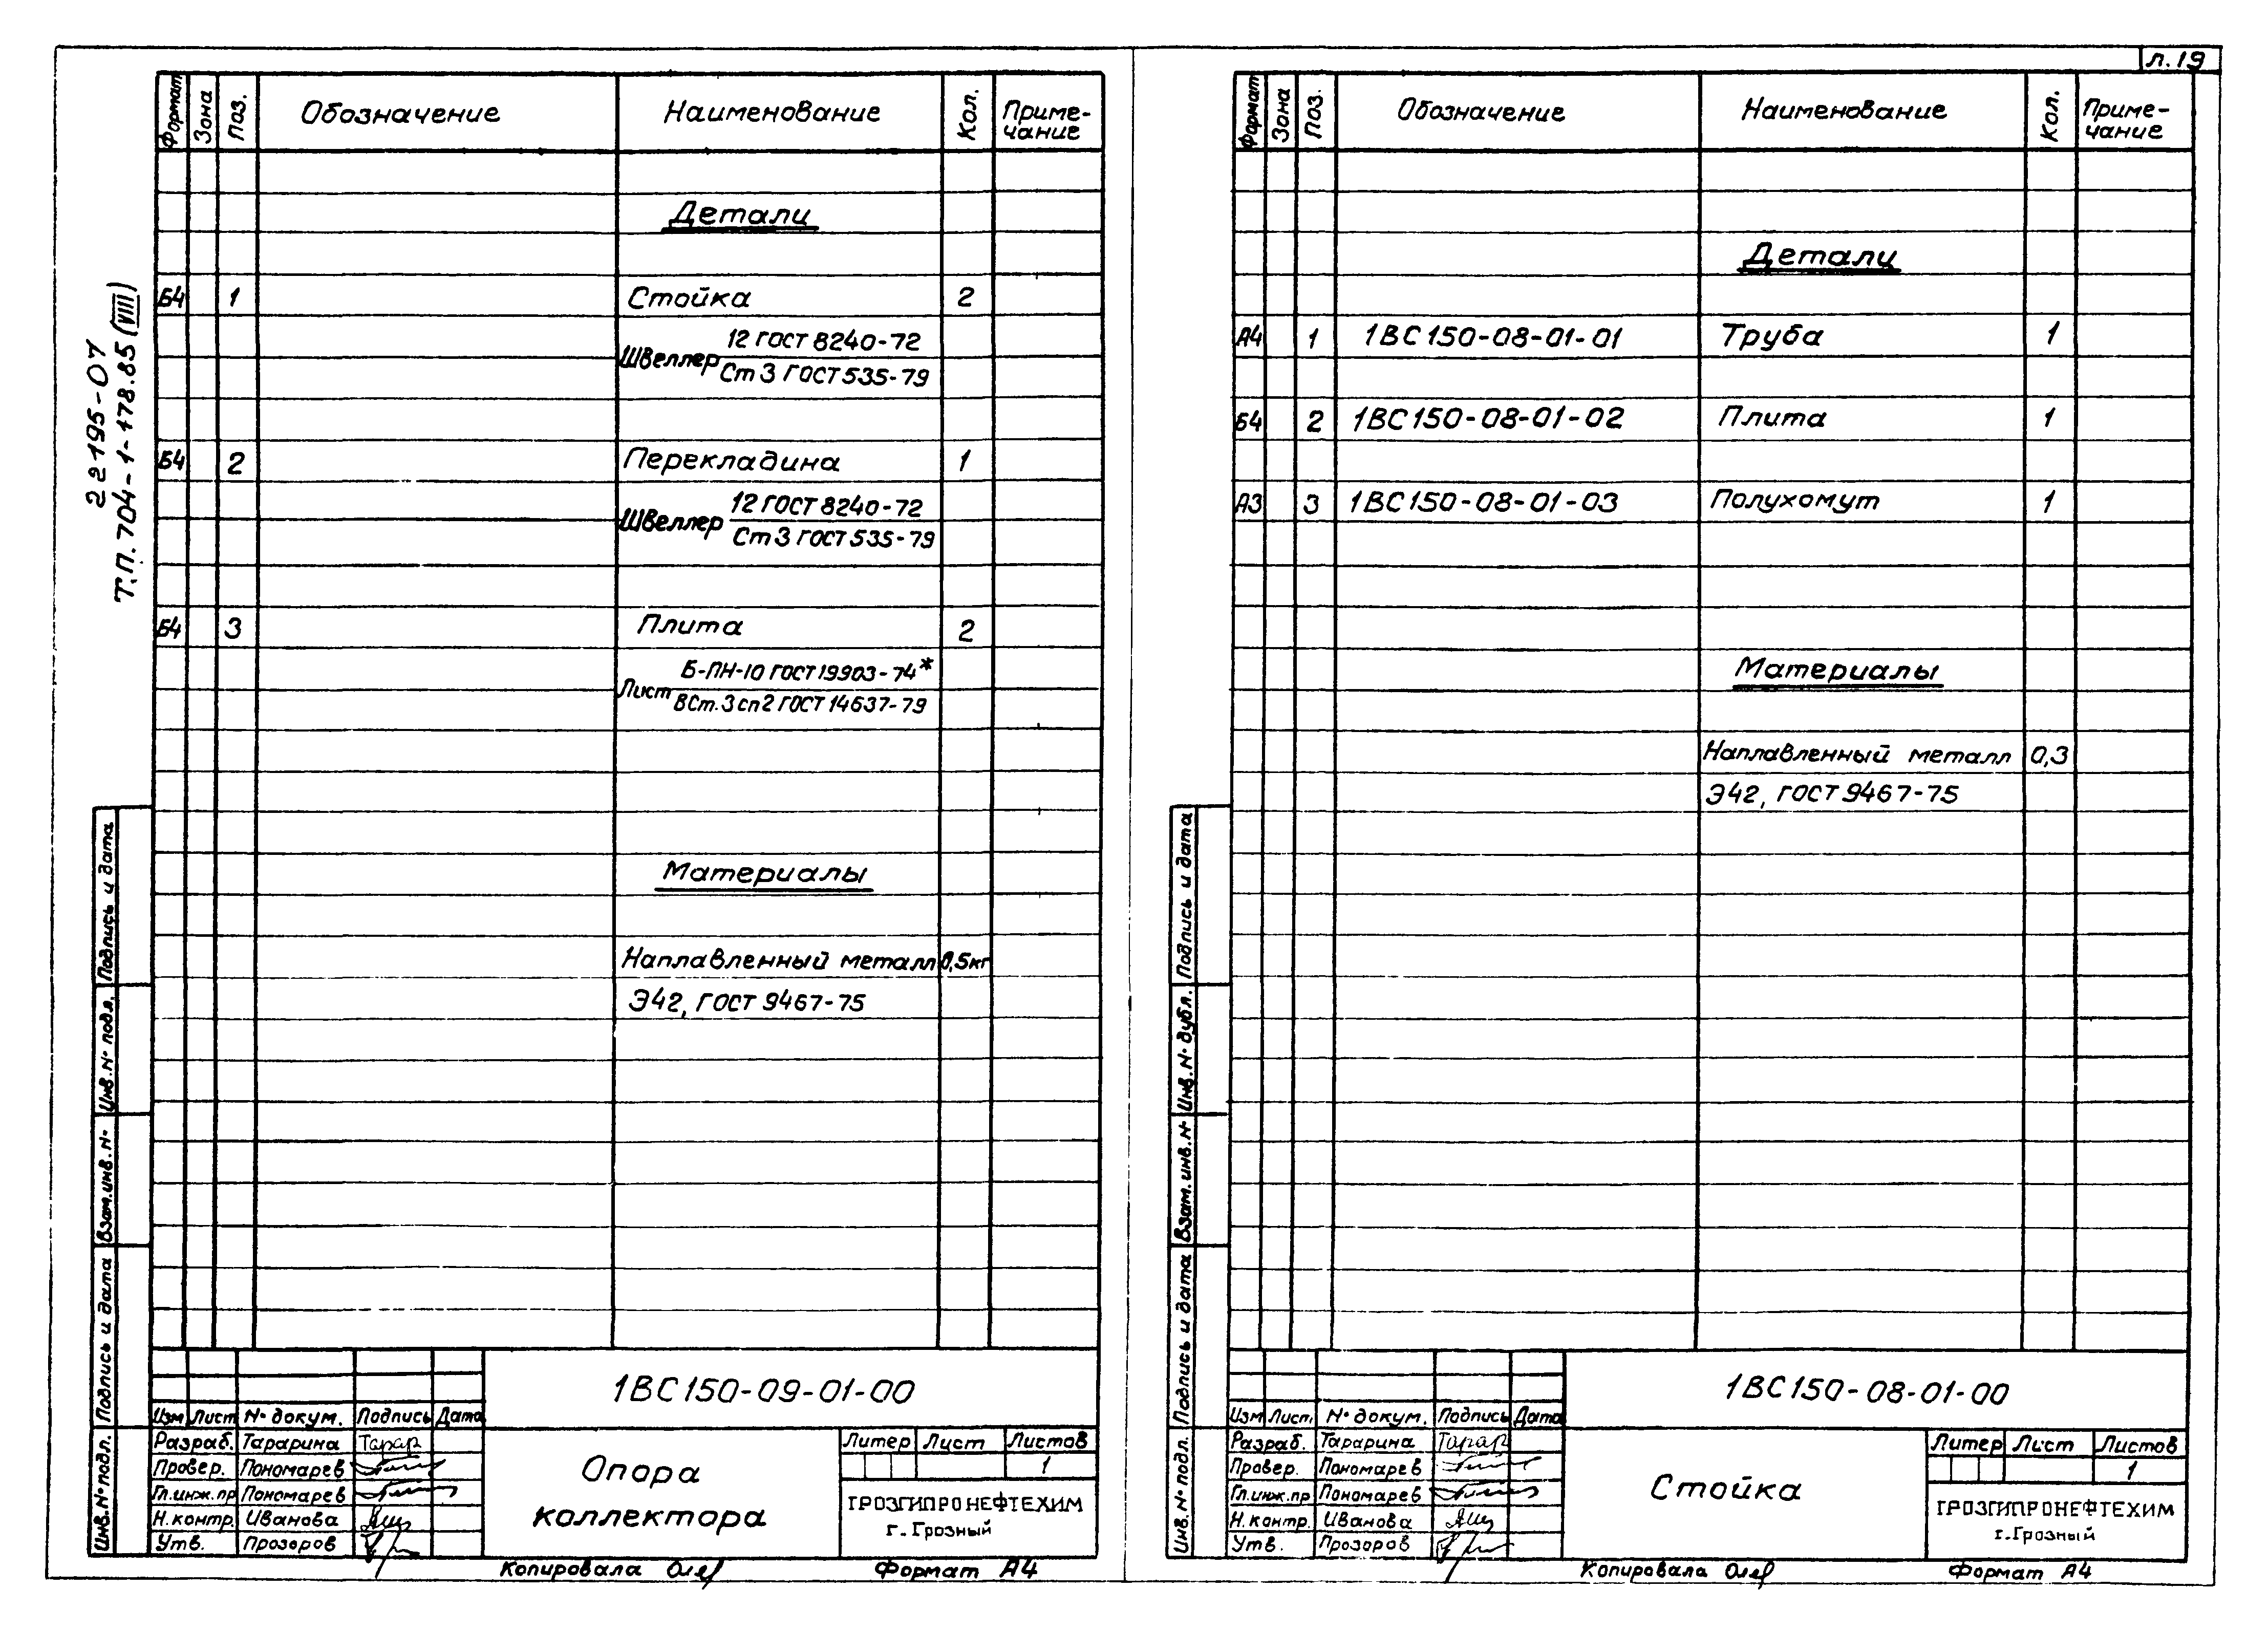 л.19
22195-07
Т.П. 704-1-178.85 (VIII)
Формат Зона Поз. Обозначение Наименование Кол. Приме-
чание
Детали
Б4 1 Стойка 2
Швеллер 12 ГОСТ 8240-72
Ст 3 ГОСТ 535-79
Б4 2 Перекладина 1
Швеллер 12 ГОСТ 8240-72
Ст 3 ГОСТ 535-79
Б4 3 Плита 2
Лист Б-ПН-10 ГОСТ 19903-74*
ВСт.3сп2 ГОСТ 14637-79
Материалы
Наплавленный металл 0,5кг
Э42, ГОСТ 9467-75
Подпись и дата
Инв. № подл.
Взам. инв. №
Подпись и дата
Инв. № подл.
1ВС150-09-01-00
Изм Лист № докум. Подпись Дата
Разраб. Тарарина Тарар
Провер. Пономарев
Гл.инж.пр Пономарев
Н.контр. Иванова
Утв. Прозоров
Опора
коллектора
Литер Лист Листов
1
ГРОЗГИПРОНЕФТЕХИМ
г. Грозный
Копировала Формат А4
Формат Зона Поз. Обозначение Наименование Кол. Приме-
чание
Детали
А4 1 1ВС150-08-01-01 Труба 1
Б4 2 1ВС150-08-01-02 Плита 1
А3 3 1ВС150-08-01-03 Полухомут 1
Материалы
Наплавленный металл 0,3
Э42, ГОСТ 9467-75
Подпись и дата
Инв. № дубл.
Взам. инв. №
Подпись и дата
Инв. № подл.
1ВС150-08-01-00
Изм Лист № докум. Подпись Дата
Разраб. Тарарина Тарар
Провер. Пономарев
Гл.инж.пр Пономарев
Н.контр. Иванова
Утв. Прозоров
Стойка
Литер Лист Листов
1
ГРОЗГИПРОНЕФТЕХИМ
г. Грозный
Копировала Формат А4